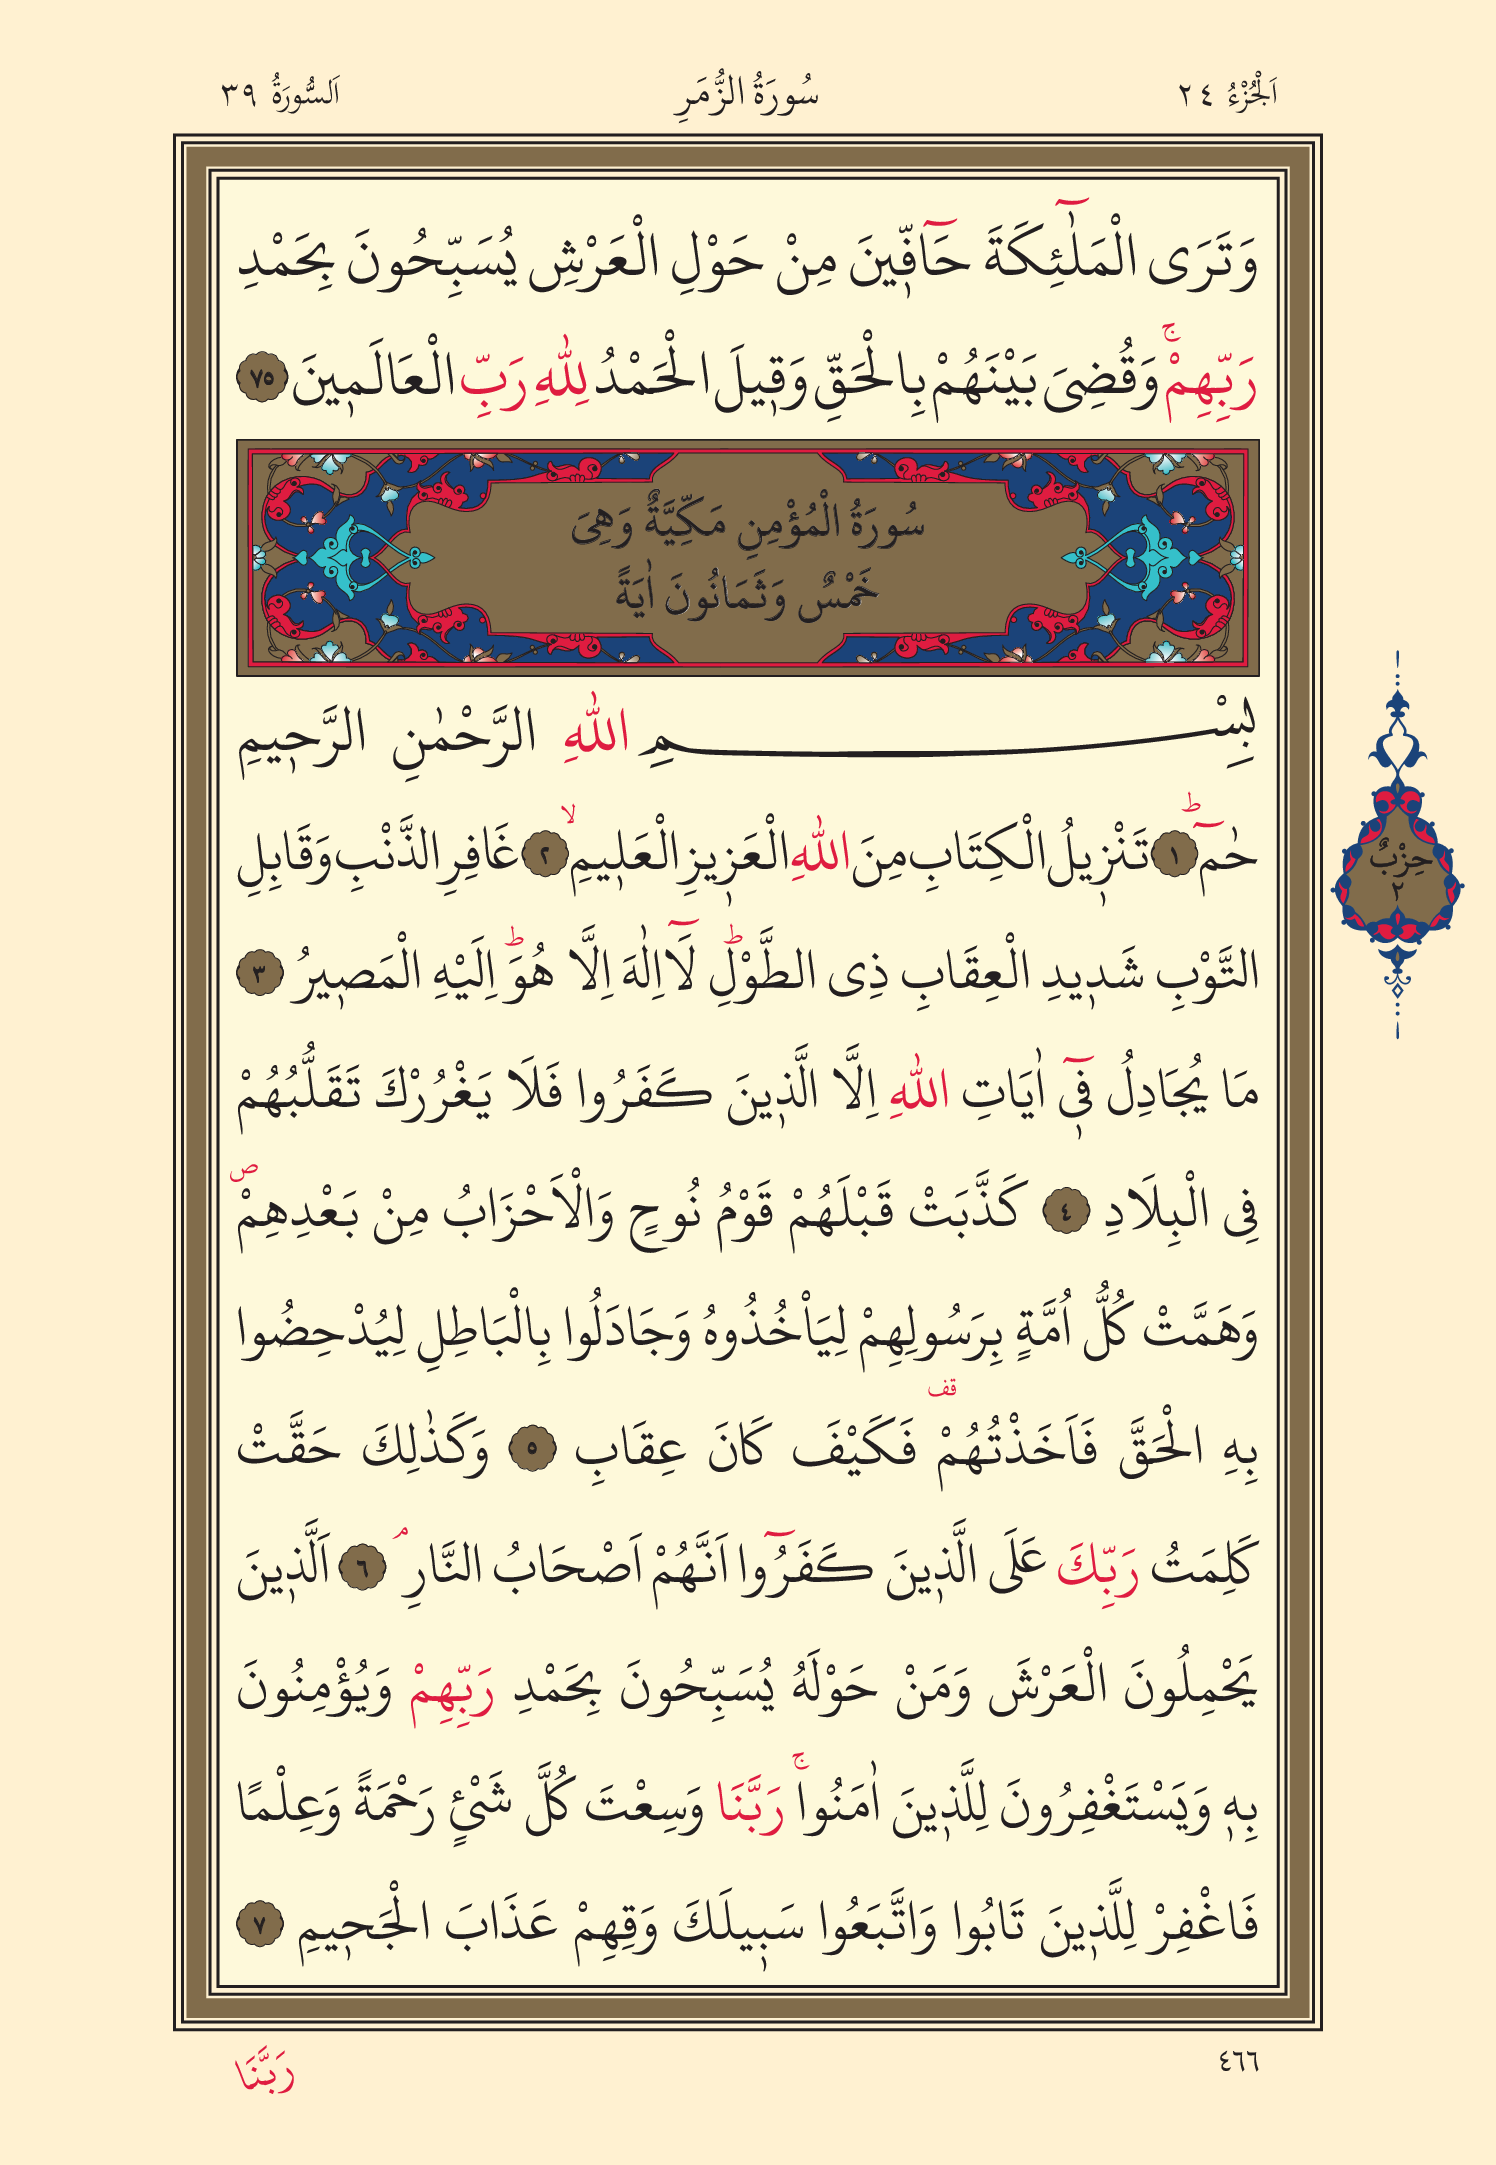 اَلْجُزْءُ ٢٤
سُورَةُ الزُّمَرِ
اَلسُّورَةُ ٣٩
وَتَرَى الْمَلٰٓئِكَةَ حَٓافّ۪ينَ مِنْ حَوْلِ الْعَرْشِ يُسَبِّحُونَ بِحَمْدِ
رَبِّهِمْۚ وَقُضِىَ بَيْنَهُمْ بِالْحَقِّ وَق۪يلَ الْحَمْدُ لِلّٰهِ رَبِّ الْعَالَم۪ينَ ٧٥
سُورَةُ الْمُؤْمِنِ مَكِّيَّةٌ وَهِىَ
خَمْسٌ وَثَمَانُونَ اٰيَةً
بِسْمِ اللّٰهِ الرَّحْمٰنِ الرَّح۪يمِ
حٰمٓۜ ١ تَنْز۪يلُ الْكِتَابِ مِنَ اللّٰهِ الْعَز۪يزِ الْعَل۪يمِۙ ٢ غَافِرِ الذَّنْبِ وَقَابِلِ
التَّوْبِ شَد۪يدِ الْعِقَابِ ذِى الطَّوْلِۜ لَٓا اِلٰهَ اِلَّا هُوَۜ اِلَيْهِ الْمَص۪يرُ ٣
مَا يُجَادِلُ ف۪ٓى اٰيَاتِ اللّٰهِ اِلَّا الَّذ۪ينَ كَفَرُوا فَلَا يَغْرُرْكَ تَقَلُّبُهُمْ
فِى الْبِلَادِ ٤ كَذَّبَتْ قَبْلَهُمْ قَوْمُ نُوحٍ وَالْاَحْزَابُ مِنْ بَعْدِهِمْۖ
وَهَمَّتْ كُلُّ اُمَّةٍ بِرَسُولِهِمْ لِيَاْخُذُوهُ وَجَادَلُوا بِالْبَاطِلِ لِيُدْحِضُوا
بِهِ الْحَقَّ فَاَخَذْتُهُمْ قف فَكَيْفَ كَانَ عِقَابِ ٥ وَكَذٰلِكَ حَقَّتْ
كَلِمَتُ رَبِّكَ عَلَى الَّذ۪ينَ كَفَرُٓوا اَنَّهُمْ اَصْحَابُ النَّارِۢ ٦ اَلَّذ۪ينَ
يَحْمِلُونَ الْعَرْشَ وَمَنْ حَوْلَهُ يُسَبِّحُونَ بِحَمْدِ رَبِّهِمْ وَيُؤْمِنُونَ
بِه۪ وَيَسْتَغْفِرُونَ لِلَّذ۪ينَ اٰمَنُواۚ رَبَّنَا وَسِعْتَ كُلَّ شَىْءٍ رَحْمَةً وَعِلْمًا
فَاغْفِرْ لِلَّذ۪ينَ تَابُوا وَاتَّبَعُوا سَب۪يلَكَ وَقِهِمْ عَذَابَ الْجَح۪يمِ ٧
حِزْبٌ
٢
٤٦٦
رَبَّنَا